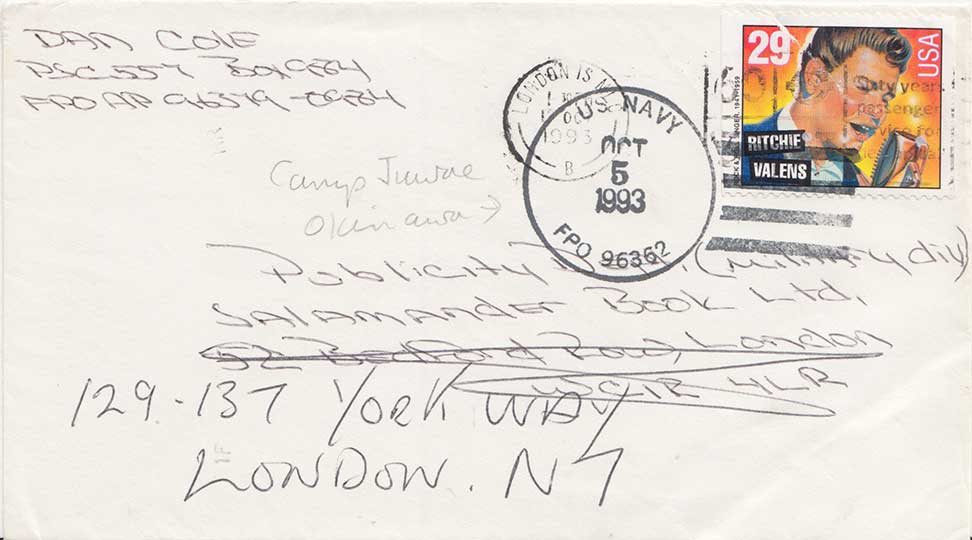 DAN COLE
PSC 557 Box 984
FPO AP 96379-0984
LONDON IS N
1993
B
US NAVY
OCT
5
1993
FPO 96362
29
USA
RITCHIE
VALENS
Sixty years
passenger
Camp
Okinawa →
Publicity (military div)
SALAMANDER BOOK Ltd,
52 Bedford Row, London
WC1R 4LR
129-137 York WAY
LONDON. N7